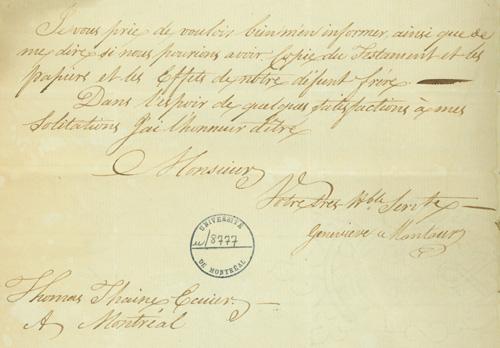 Je vous prie de vouloir bien m'en informer ainsi que de
me dire si nous pourions avoir Copie du Testament et les
papiers et les Effets de notre défunt frère
Dans l'espoir de quelques satisfactions à mes
Solitations J'ai l'honneur d'être
Monsieur
Votre très Hble Servte
Geneviève Montour
UNIVERSITÉ
u/8777
DE MONTRÉAL
Thomas Thain Ecuier
A Montréal